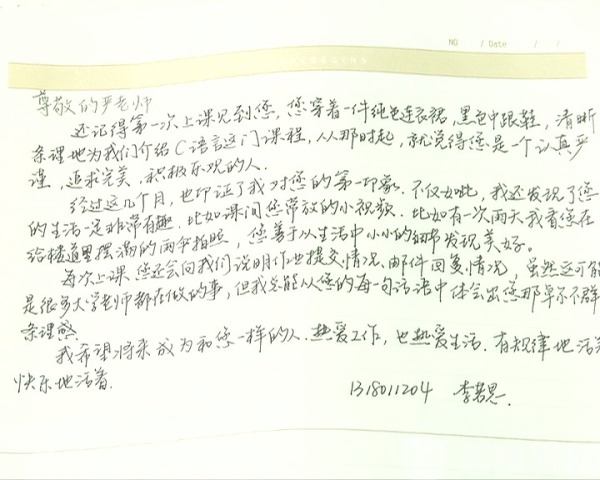 NO / Date / /
尊敬的严老师
还记得第一次上课见到您，您穿着一件纯色连衣裙，黑色中跟鞋，清晰
条理地为我们介绍C语言这门课程，从那时起，就觉得您是一个认真严
谨，追求完美，积极乐观的人.
经过这几个月，也印证了我对您的第一印象. 不仅如此，我还发现了您
的生活一定非常有趣. 比如课间您常放的小视频. 比如有一次雨天我看您在
给楼道里摆满的雨伞拍照，您善于从生活中小小的细节发现美好.
每次上课您还会向我们说明作业提交情况、邮件回复情况，虽然这可能
是很多大学老师都在做的事，但我总能从您的每一句话语中体会出您那卓尔不群
条理感.
我希望将来成为和您一样的人. 热爱工作，也热爱生活. 有规律地活着
快乐地活着.
1318011204 李若思.